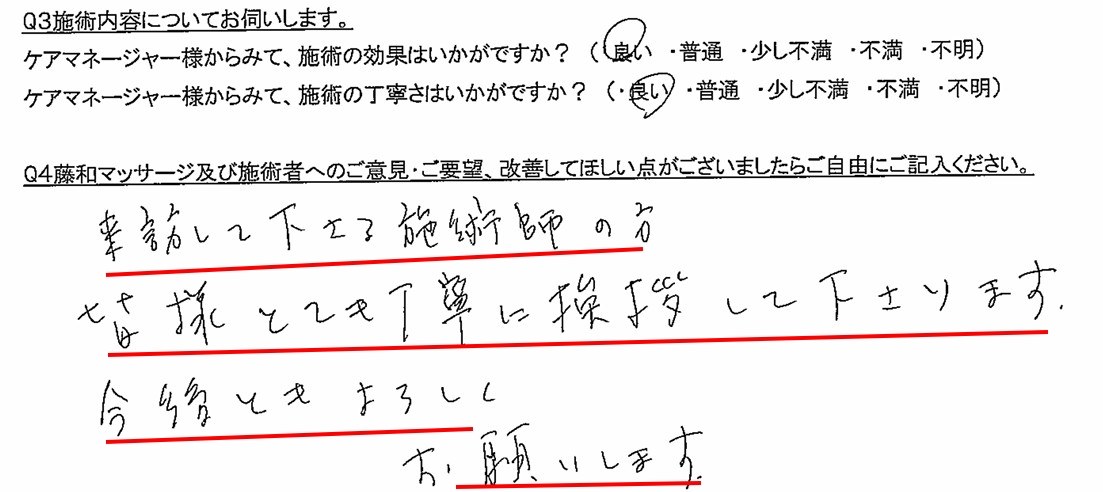 Q3施術内容についてお伺いします。
ケアマネージャー様からみて、施術の効果はいかがですか？（ 良い ・普通 ・少し不満 ・不満 ・不明）
ケアマネージャー様からみて、施術の丁寧さはいかがですか？（・良い ・普通 ・少し不満 ・不満 ・不明）
Q4藤和マッサージ及び施術者へのご意見・ご要望、改善してほしい点がございましたらご自由にご記入ください。
来訪して下さる施術師の方
皆様とても丁寧に挨拶して下さります。
今後ともよろしく
お願いします。